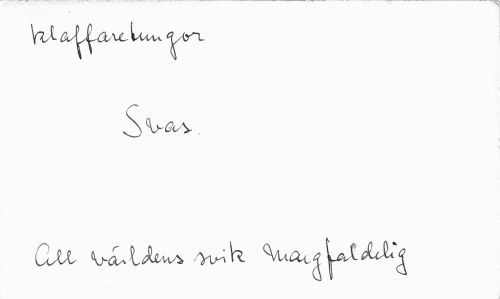 klaffaretungor
Svas.
All världens svik mangfaldelig